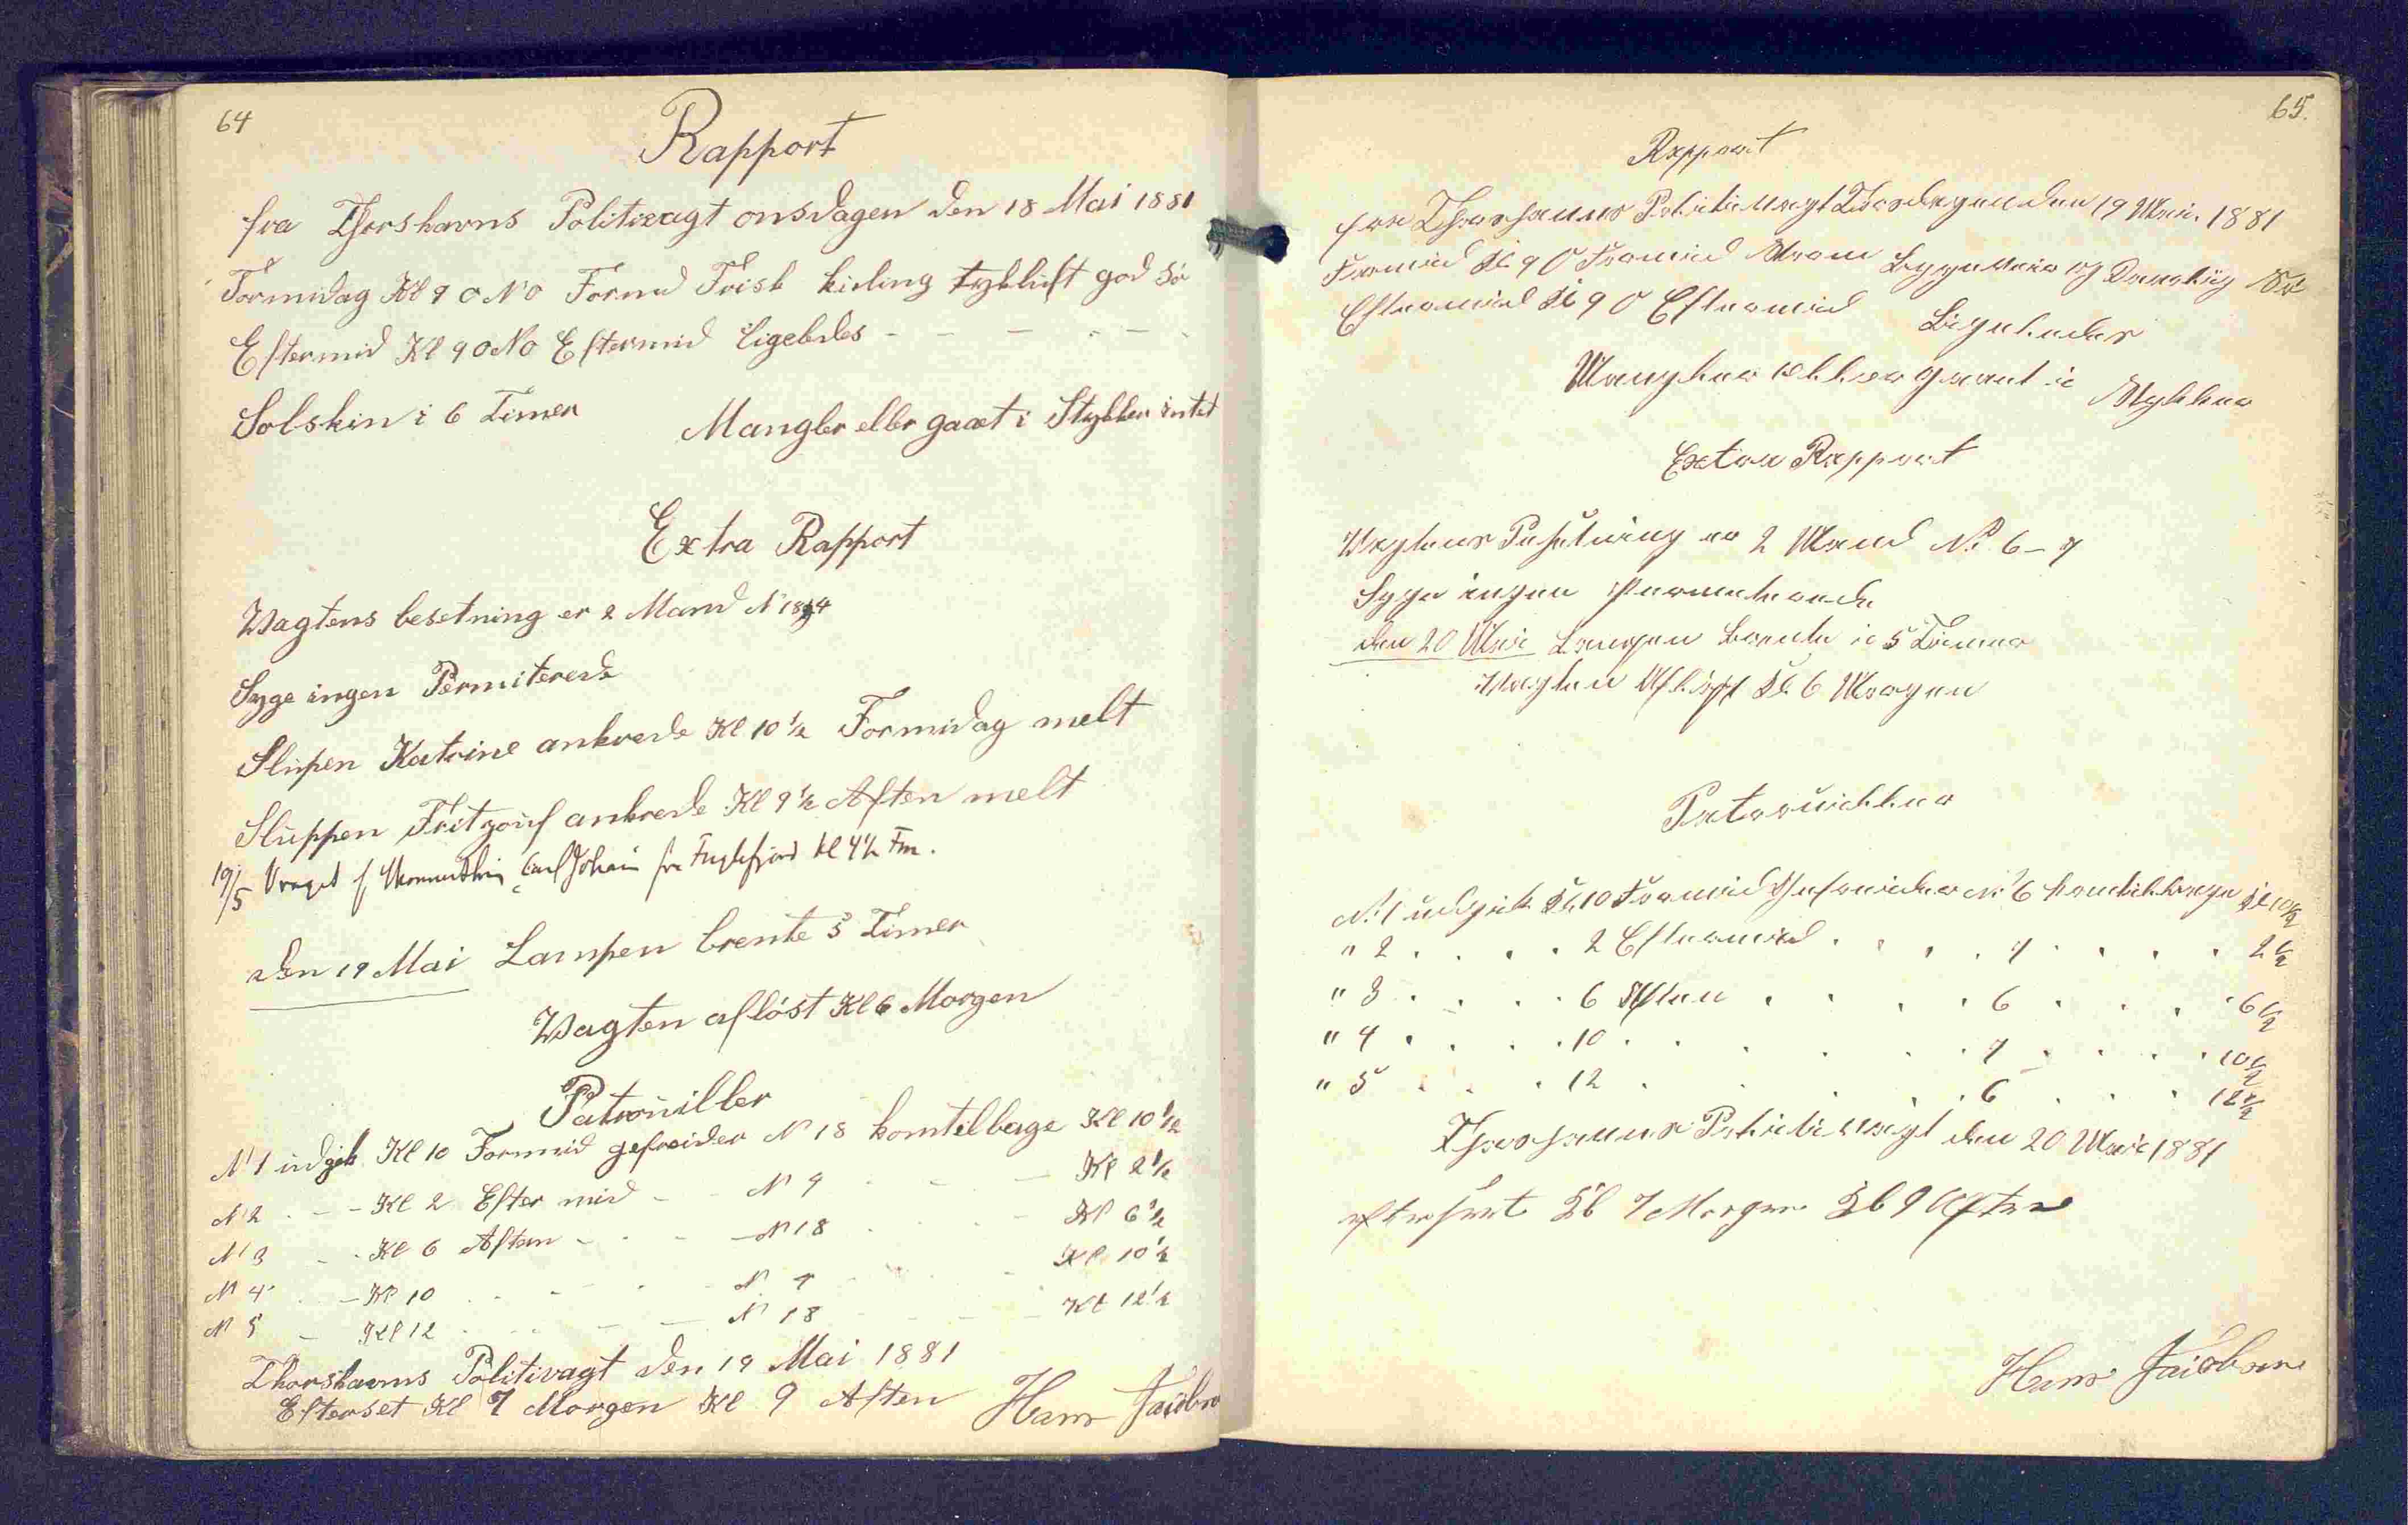 64
Rapport
fra Thorshavns Politivagt onsdagen den 18 Mai 1881
Formidag Kl 9 O N O Formd Frisk kuling tykluft god Sö
Eftermid Kl 9 O No Eftermid ligeledes - - - - - -
Solskin i 6 Timer Mangler eller gaaet i Stykker intet
Extra Rapport
Wagtens besetning er 2 Mand N 18
Syge ingen Permiterede
Slupen Katrine ankrede Kl 10 ½ Formidag melt
Sluppen ankrede Kl 9 ½ Aften melt
19/5 Vraget f Carl Johan fra Fuglefjord kl 4½ Fm.
den 19 Mai Lampen brente 5 Timer
Wagten aflöst Kl 6 Morgen
Patrouiller
N 1 udgik Kl 10 Formid gefreider N 18 komtilbage Kl 10 ½
N 2 - - - Kl 2 Efter mid - - N 4 - - - Kl 2 ½
N 3 - - Kl 6 Aften - - - N 18 - - - Kl 6 ½
N 4 - - Kl 10 - - - - N 4 - - - Kl 10 ½
N 5 - Kl 12 - - - - N 18 - - - Kl 12 ½
Thorshavns Politivagt den 19 Mai 1881
Efterset Kl 7 Morgen Kl 9 Aften Hans Jacobsen
65.
Rapport
fra Thorshavns Politivagt Torsdagen den 19 Mai 1881
Formid Kl 9 O Formid Storm Regn
Eftermid Kl 9 O Eftermid Ligeledes
Mangler eller gaaet i Stykker
Extra Rapport
Wagtens Besetning er 2 Mand No. 6 - 7
Syge ingen Permeterede
den 20 Mai Lampen brente i 5 Timer
Wagten Aflöst Kl. 6 Morgen
Patrouiller
No. 1 udgik Kl. 10 Formid Gefreider No 6 komtilbage Kl 10½
" 2 . . . . 2 Eftermid . . . . 7 . . . . 2½
" 3 . . . . 6 Aften . . . . 6 . . . . 6½
" 4 . . . . 10 . . . . . . 7 . . . . 10½
" 5 . . . . 12 . . . . . . 6 . . . . 12½
Thorshavns Politivagt den 20 Mai 1881
efterset Kl 7 Morgen Kl 9 Aften
Hans Jacobsen